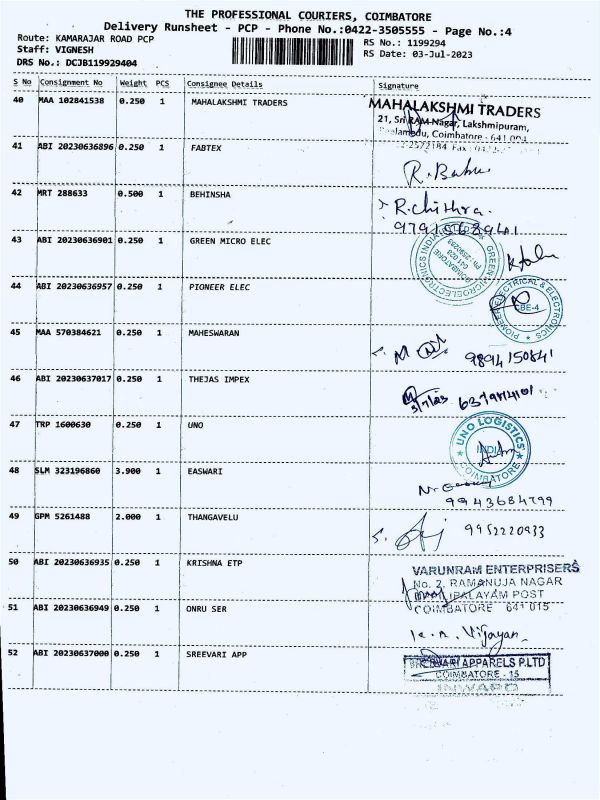 THE PROFESSIONAL COURIERS, COIMBATORE
Delivery Runsheet - PCP - Phone No.:0422-3505555 - Page No.:4
Route: KAMARAJAR ROAD PCP
RS No.: 1199294
Staff: VIGNESH
RS Date: 03-Jul-2023
DRS No.: DCJB119929404
S No Consignment No Weight PCS Consignee Details Signature
40 MAA 102841538 0.250 1 MAHALAKSHMI TRADERS
MAHALAKSHMI TRADERS
21, Sri RAM Nagar, Lakshmipuram,
Coimbatore - 641 004
41 ABI 20230636896 0.250 1 FABTEX
R. Babu
42 MRT 288633 0.500 1 BEHINSHA
R. Chithra.
9791568941
43 ABI 20230636901 0.250 1 GREEN MICRO ELEC
GREEN MICROELECTRONICS INDIA
COIMBATORE
641 023
44 ABI 20230636957 0.250 1 PIONEER ELEC
PIONEER ELECTRICAL & ELECTRONICS
CBE-4
45 MAA 570384621 0.250 1 MAHESWARAN
9894150841
46 ABI 20230637017 0.250 1 THEJAS IMPEX
3/7/23
47 TRP 1600630 0.250 1 UNO
UNO LOGISTICS
INDIA
COIMBATORE
48 SLM 323196860 3.900 1 EASWARI
9943684799
49 GPM 5261488 2.000 1 THANGAVELU
9952220933
50 ABI 20230636935 0.250 1 KRISHNA ETP
VARUNRAM ENTERPRISERS
No. 2, RAMANUJA NAGAR
PALAYAM POST
COIMBATORE 641 015
51 ABI 20230636949 0.250 1 ONRU SER
K. A. Vijayan
52 ABI 20230637000 0.250 1 SREEVARI APP
SREEVARI APPARELS P.LTD
COIMBATORE - 15
INWARD